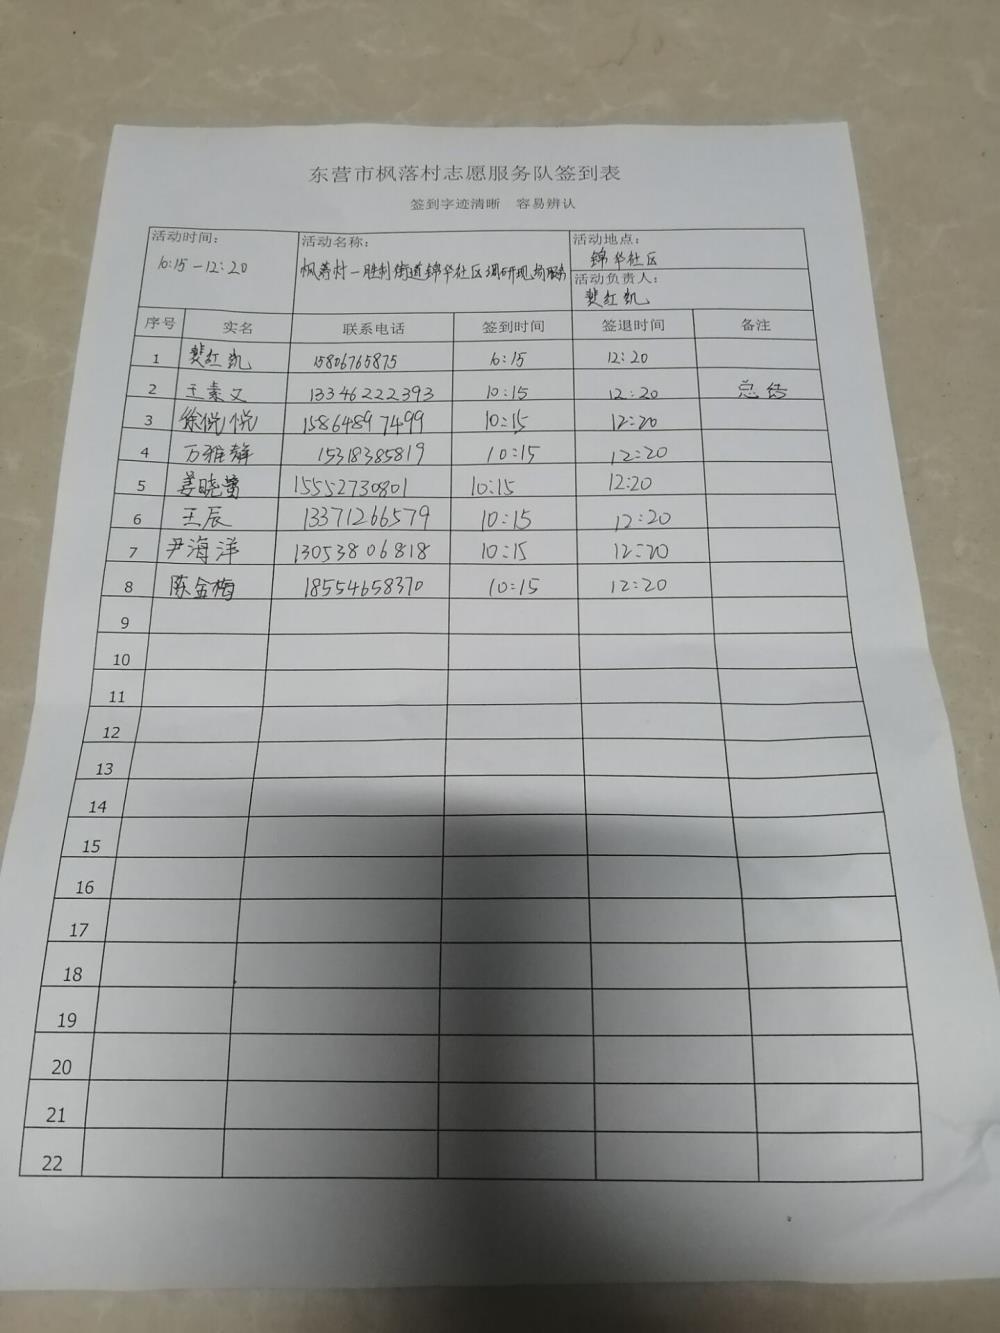 东营市枫落村志愿服务队签到表
签到字迹清晰 容易辨认
活动时间： 活动名称： 活动地点：
10:15-12:20 枫落村-胜利街道锦华社区调研现场服务 锦华社区
活动负责人：
裴红凯
序号 实名 联系电话 签到时间 签退时间 备注
1 裴红凯 15806765875 10:15 12:20
2 王素文 13346222393 10:15 12:20 总结
3 徐悦悦 15864897499 10:15 12:20
4 万雅静 15318385819 10:15 12:20
5 姜晓 15552730801 10:15 12:20
6 王辰 13371266579 10:15 12:20
7 尹海洋 13053806818 10:15 12:20
8 陈金梅 18554658370 10:15 12:20
9
10
11
12
13
14
15
16
17
18
19
20
21
22